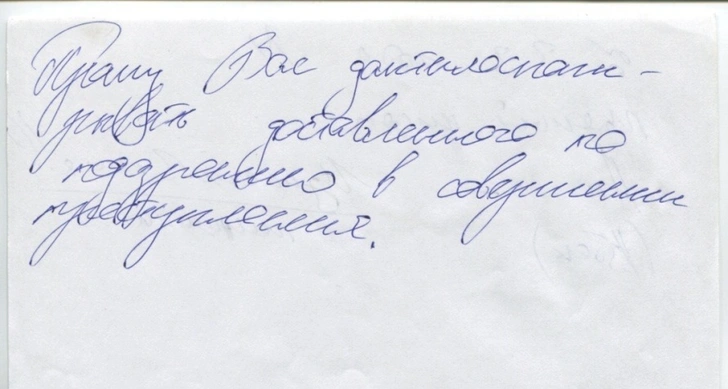 Прошу Вас дактилоскопи-
ровать доставленного по
подозрению в совершении
преступления.